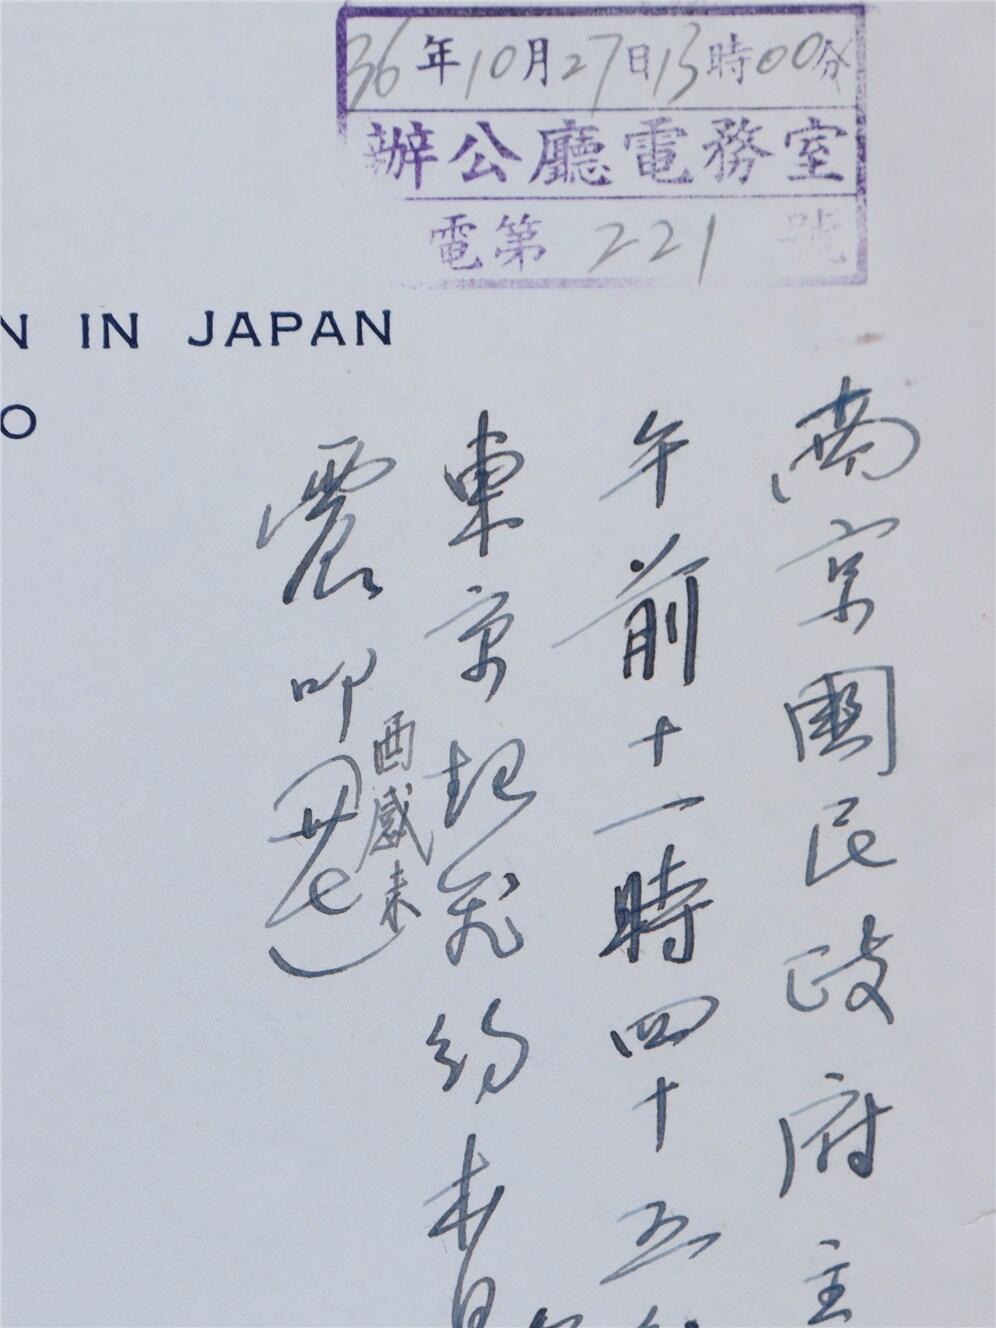 36年10月27日13時00分
辦公廳電務室
電第 221 號
N IN JAPAN
O
南京國民政府主
午前十一時四十五
東京起飛約本日
震叩
酉感未